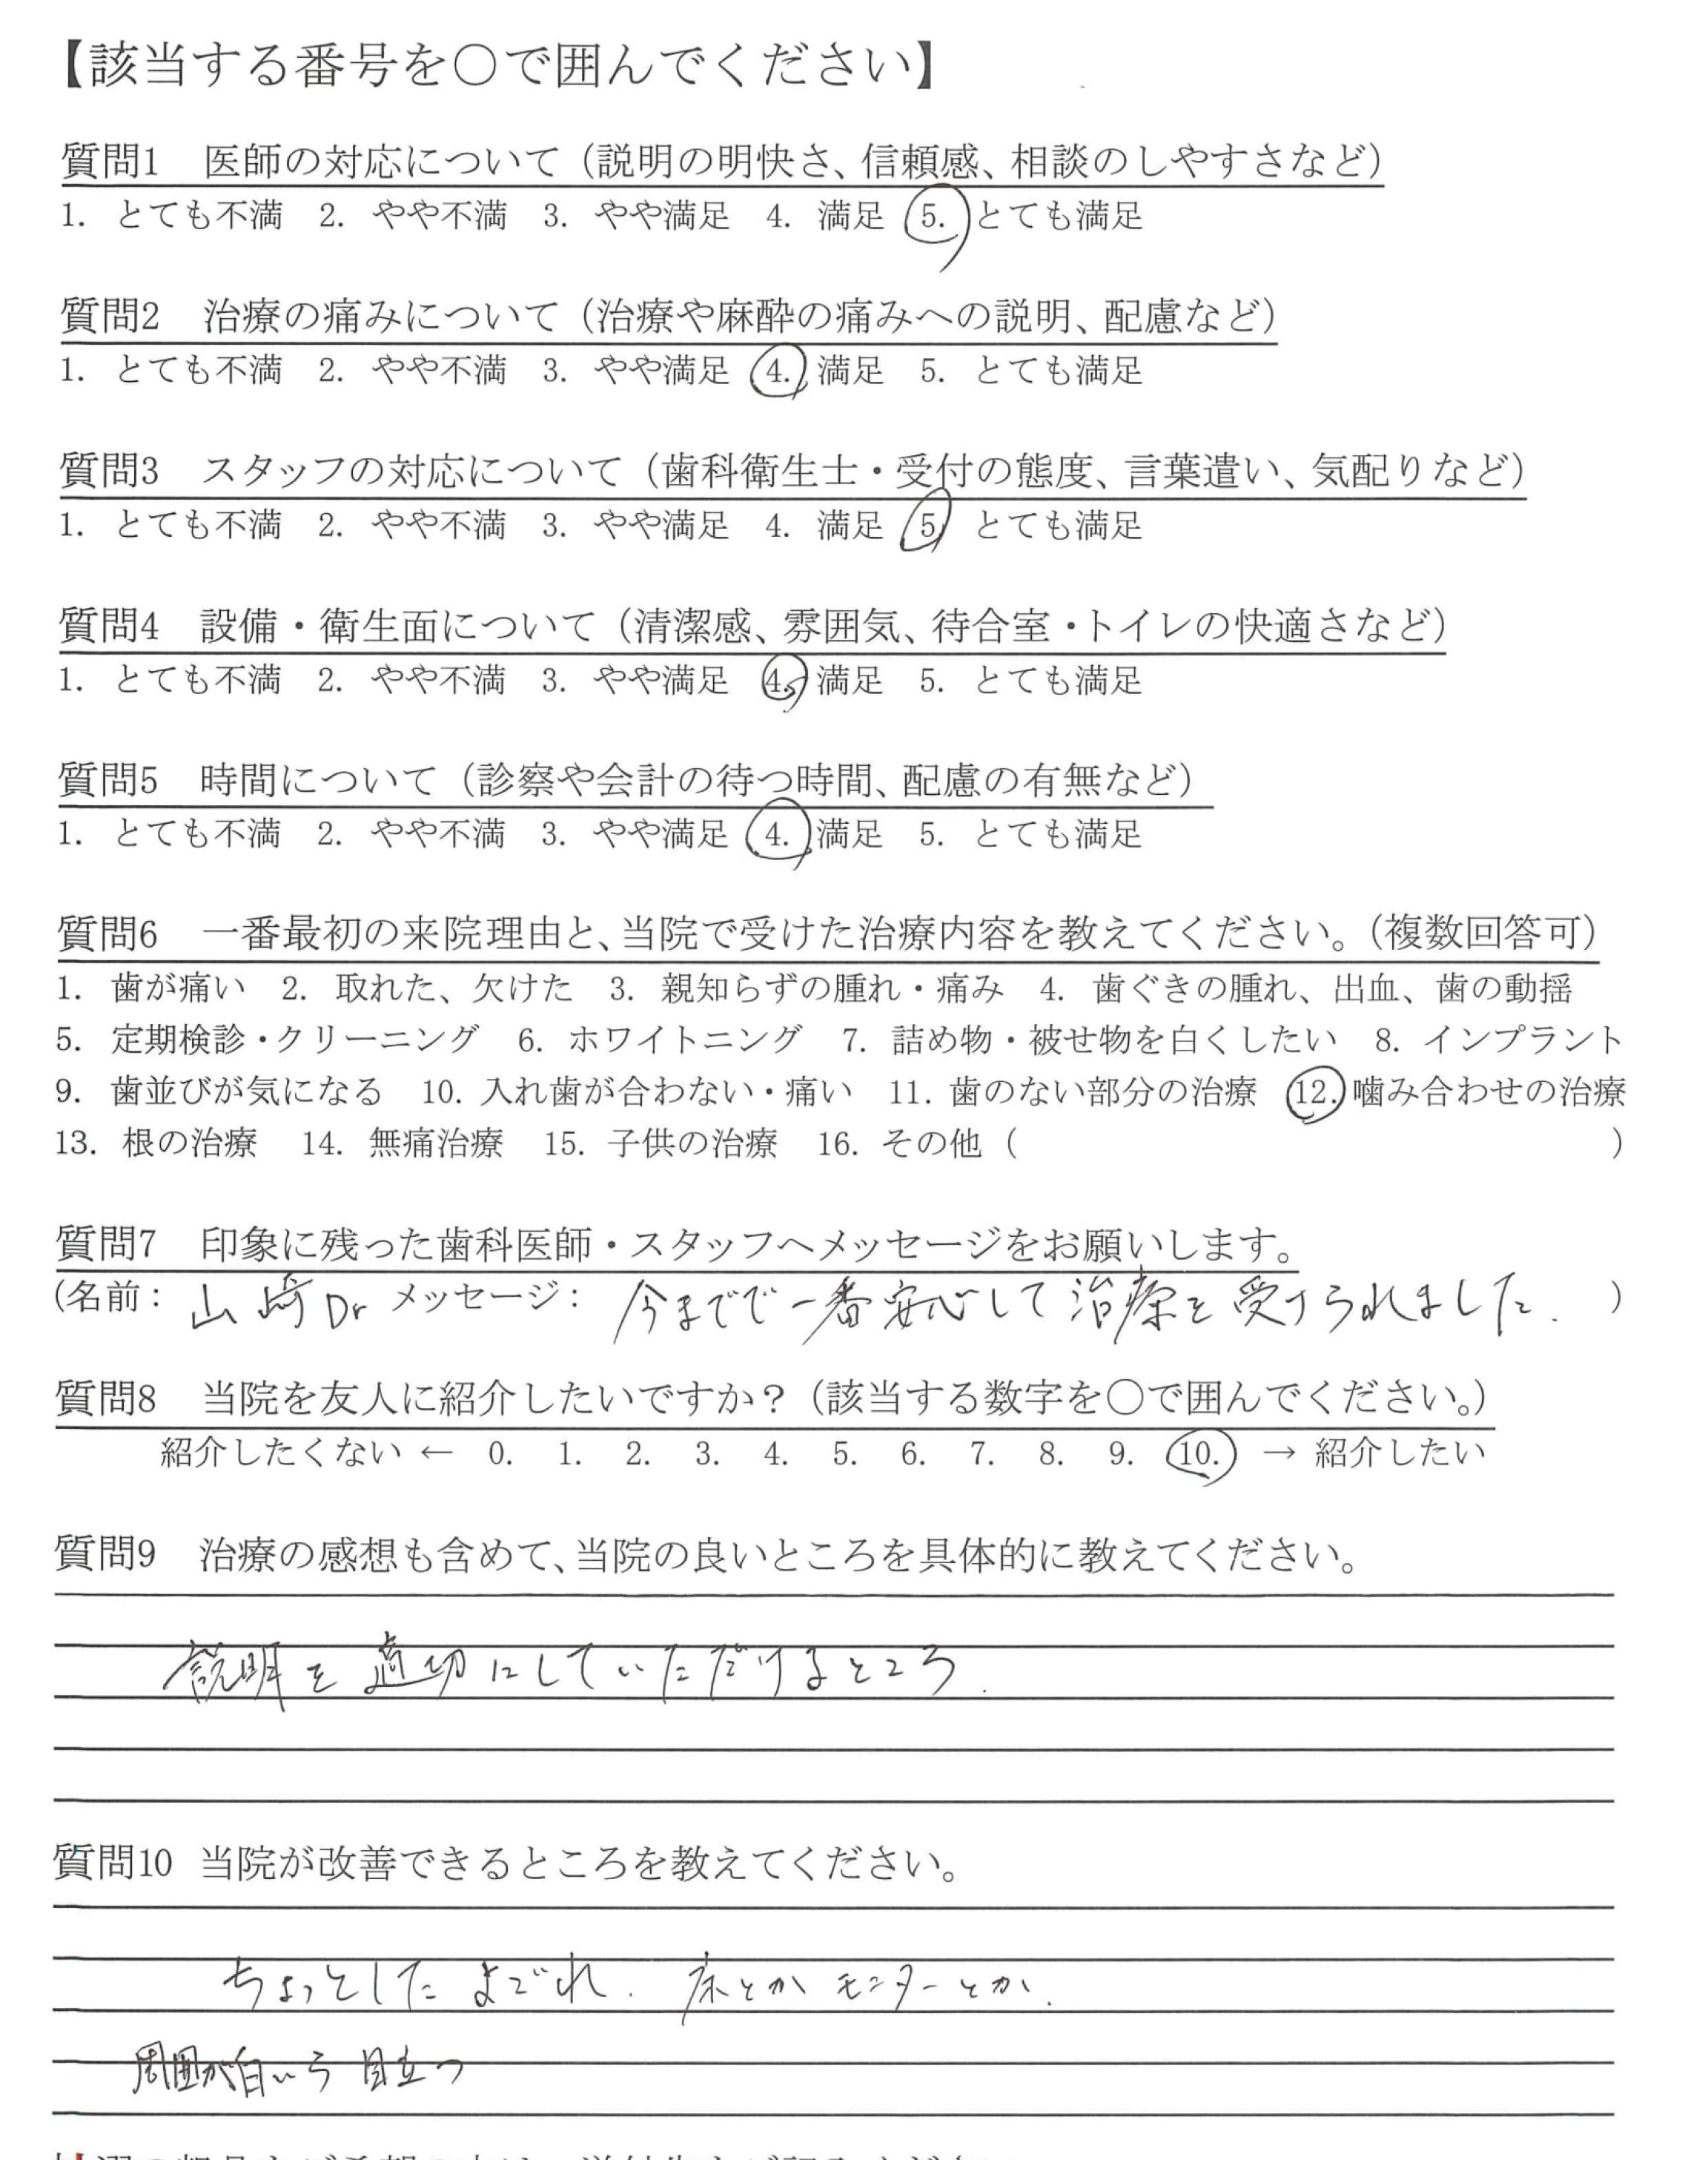 【該当する番号を○で囲んでください】
質問1　医師の対応について（説明の明快さ、信頼感、相談のしやすさなど）
1. とても不満　2. やや不満　3. やや満足　4. 満足　5. とても満足
質問2　治療の痛みについて（治療や麻酔の痛みへの説明、配慮など）
1. とても不満　2. やや不満　3. やや満足　4. 満足　5. とても満足
質問3　スタッフの対応について（歯科衛生士・受付の態度、言葉遣い、気配りなど）
1. とても不満　2. やや不満　3. やや満足　4. 満足　5. とても満足
質問4　設備・衛生面について（清潔感、雰囲気、待合室・トイレの快適さなど）
1. とても不満　2. やや不満　3. やや満足　4. 満足　5. とても満足
質問5　時間について（診察や会計の待つ時間、配慮の有無など）
1. とても不満　2. やや不満　3. やや満足　4. 満足　5. とても満足
質問6　一番最初の来院理由と、当院で受けた治療内容を教えてください。（複数回答可）
1. 歯が痛い　2. 取れた、欠けた　3. 親知らずの腫れ・痛み　4. 歯ぐきの腫れ、出血、歯の動揺
5. 定期検診・クリーニング　6. ホワイトニング　7. 詰め物・被せ物を白くしたい　8. インプラント
9. 歯並びが気になる　10. 入れ歯が合わない・痛い　11. 歯のない部分の治療　12. 噛み合わせの治療
13. 根の治療　14. 無痛治療　15. 子供の治療　16. その他（　　　　）
質問7　印象に残った歯科医師・スタッフへメッセージをお願いします。
(名前： 山崎Dr メッセージ： 今までで一番安心して治療を受けられました. ）
質問8　当院を友人に紹介したいですか？（該当する数字を○で囲んでください。）
紹介したくない ← 0. 1. 2. 3. 4. 5. 6. 7. 8. 9. 10. → 紹介したい
質問9　治療の感想も含めて、当院の良いところを具体的に教えてください。
説明を適切にしていただけるところ.
質問10 当院が改善できるところを教えてください。
ちょっとした よごれ. 床とか モニターとか.
周囲が白いう 目立つ